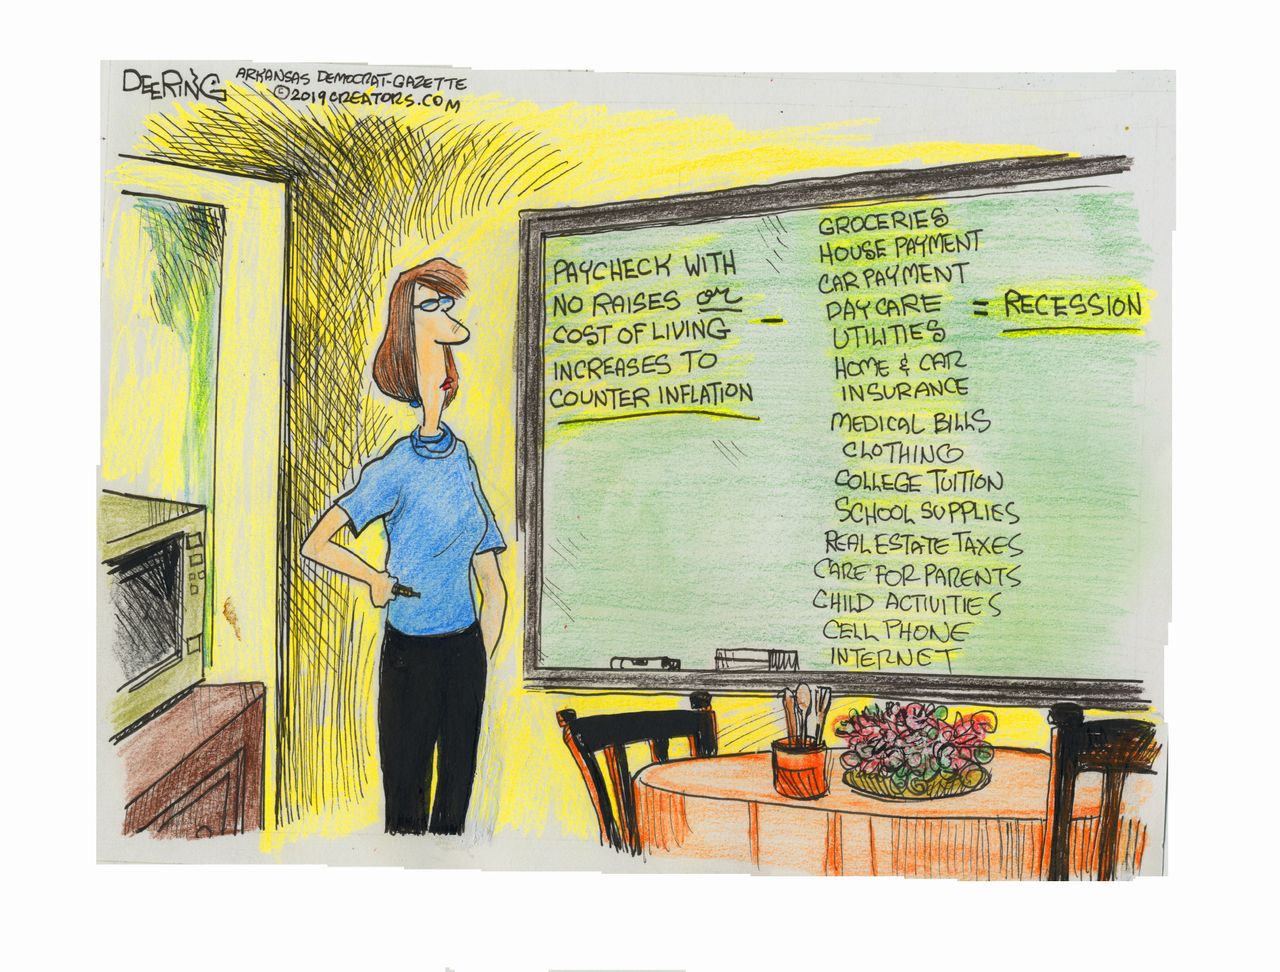 DEERING
ARKANSAS DEMOCRAT-GAZETTE
©2019 CREATORS.COM
PAYCHECK WITH
NO RAISES or
COST OF LIVING
INCREASES TO
COUNTER INFLATION
-
GROCERIES
HOUSE PAYMENT
CAR PAYMENT
DAYCARE
UTILITIES
HOME & CAR
INSURANCE
MEDICAL BILLS
CLOTHING
COLLEGE TUITION
SCHOOL SUPPLIES
REAL ESTATE TAXES
CARE FOR PARENTS
CHILD ACTIVITIES
CELL PHONE
INTERNET
= RECESSION